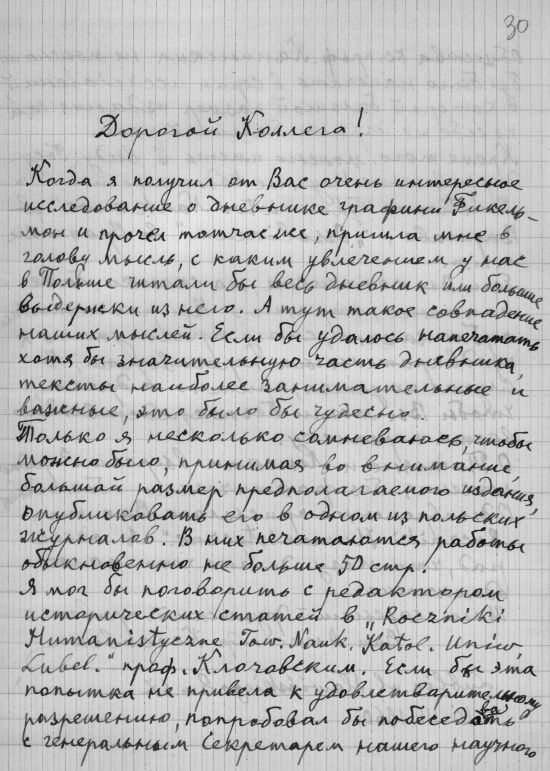 30
Дорогой Коллега!
Когда я получил от Вас очень интересное
исследование о дневнике графини Фикель-
мон и прочел тотчас же, пришла мне в
голову мысль, с каким увлечением у нас
в Польше читали бы весь дневник или большие
выдержки из него. А тут такое совпадение
наших мыслей. Если бы удалось напечатать
хотя бы значительную часть дневника,
тексты наиболее занимательные и
важные, это было бы чудесно.
Только я несколько сомневаюсь, чтобы
можно было, принимая во внимание
большой размер предполагаемого издания,
опубликовать его в одном из польских
журналов. В них печатаются работы
обыкновенно не больше 50 стр.
Я мог бы поговорить с редактором
исторических статей в „Roczniki
Humanistyczne Tow. Nauk. Katol. Uniw.
Lubel.“ проф. Клочовским. Если бы эта
попытка не привела к удовлетварительному
разрешению, попробовал бы побеседовать
с генеральным Секретарем нашего научного